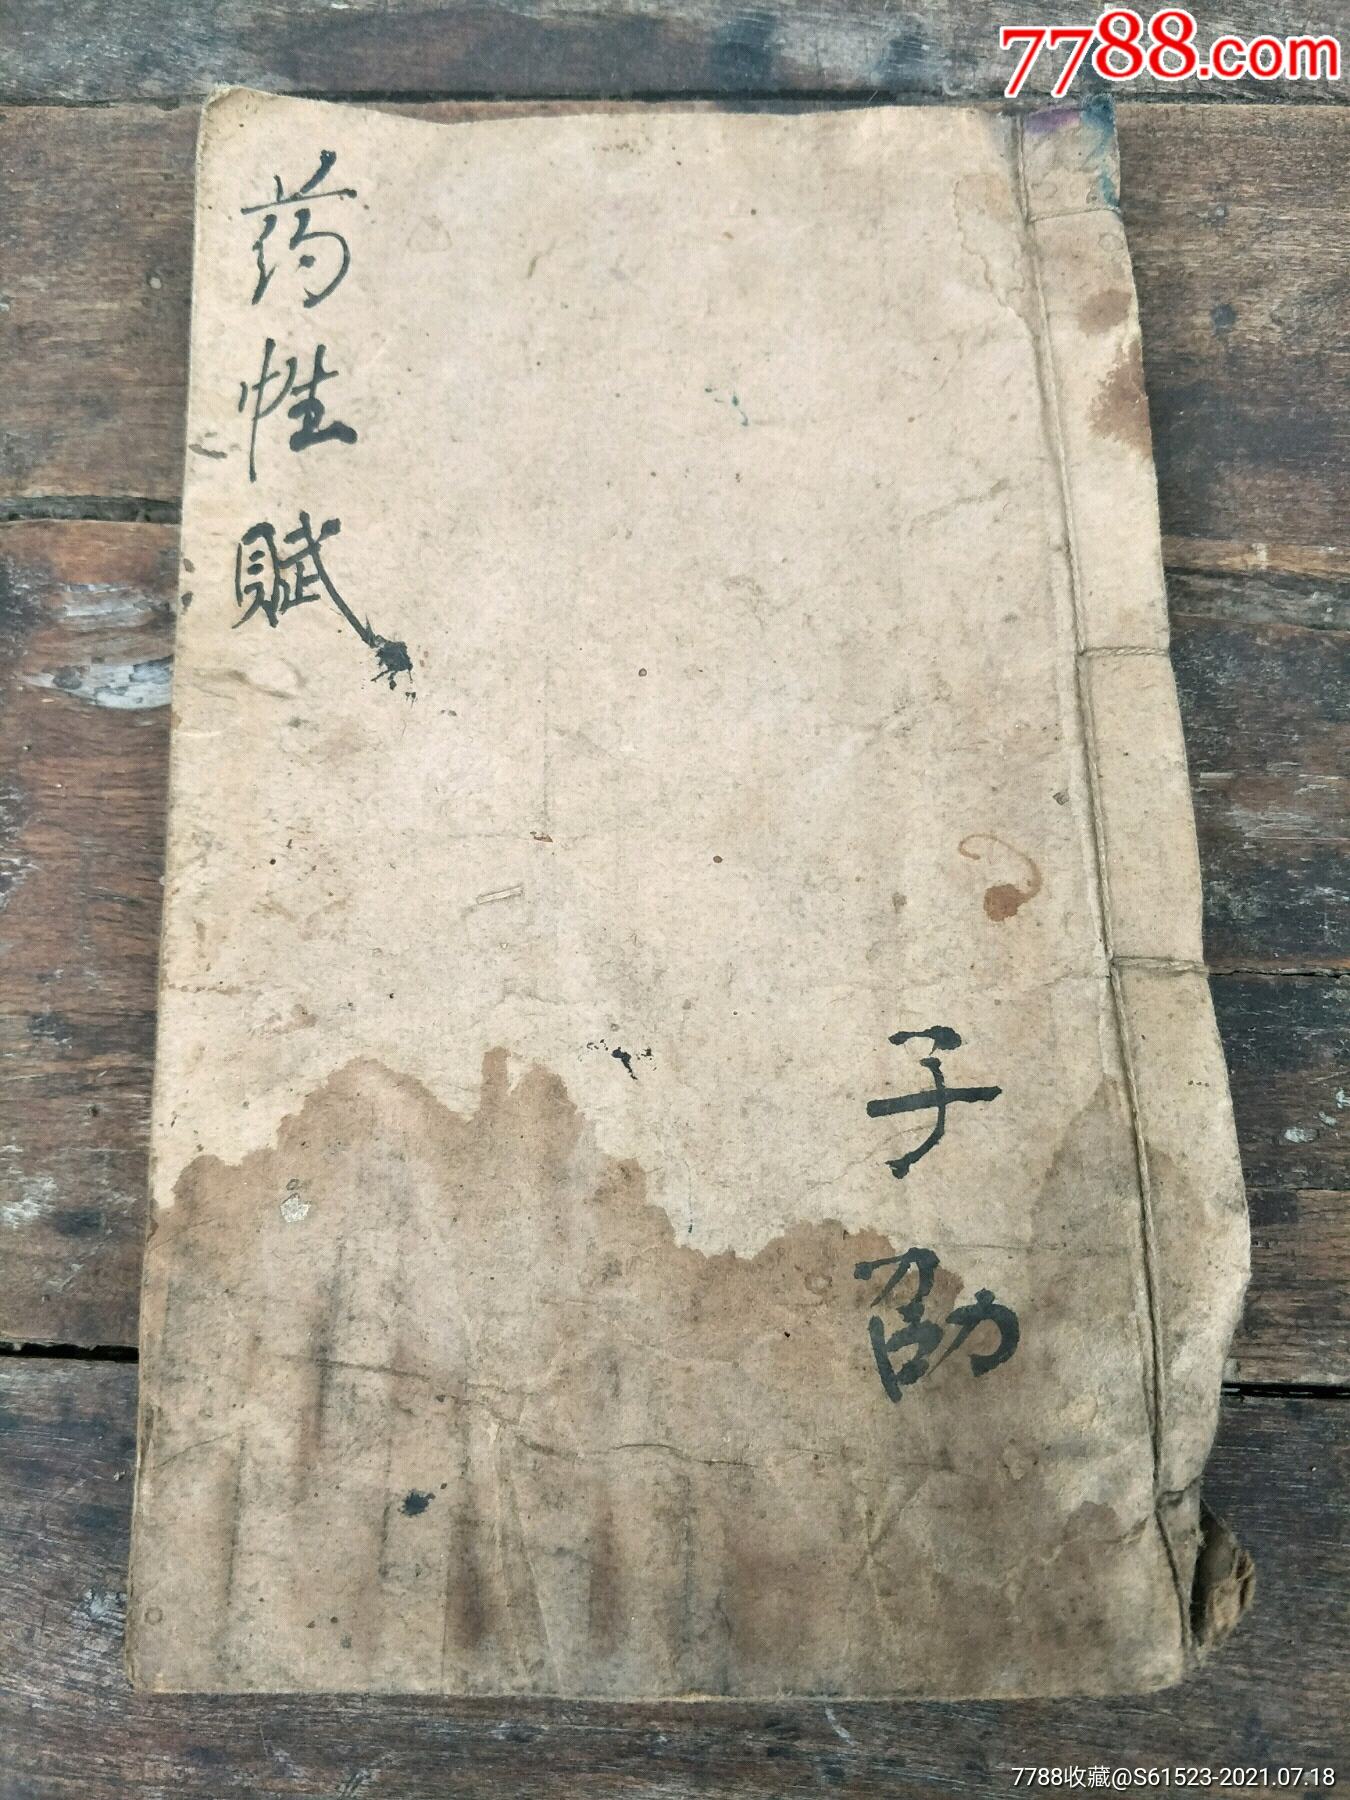 7788.com
药性赋
子劭
7788收藏@S61523-2021.07.18